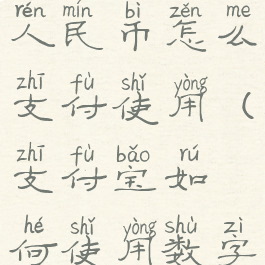 rén mín bì zěn me
人民币怎么
zhī fù shǐ yòng
支付使用(
zhī fù bǎo rú
支付宝如
hé shǐ yòng shù zì
何使用数字